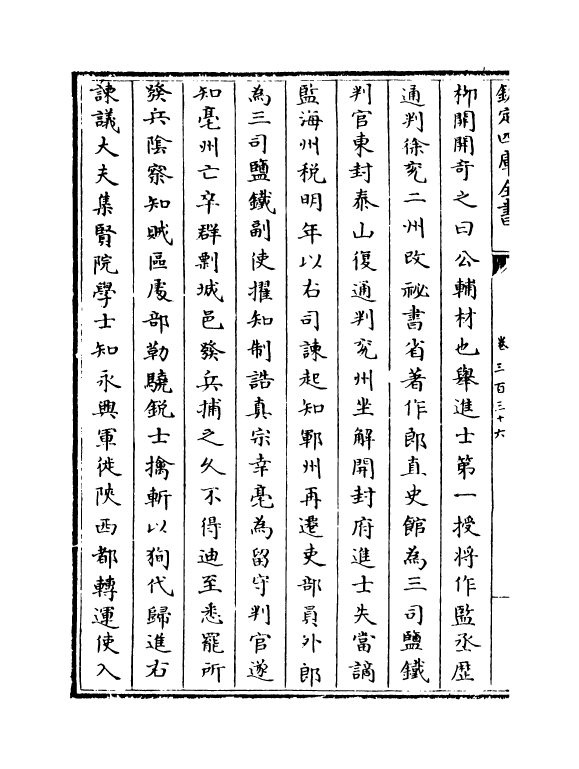 欽定四庫全書
卷三百三十六
柳開開竒之曰公輔材也舉進士第一授將作監丞歴
通判徐兖二州改祕書省著作郎直史館為三司鹽鐵
判官東封泰山復通判兖州坐解開封府進士失當謫
監海州税明年以右司諫起知鄆州再遷吏部員外郎
為三司鹽鐵副使擢知制誥真宗幸亳為留守判官遂
知亳州亡卒群剽城邑發兵捕之久不得迪至悉罷所
發兵陰察知賊區處部勒驍鋭士擒斬以狥代歸進右
諫議大夫集賢院學士知永興軍徙陜西都轉運使入